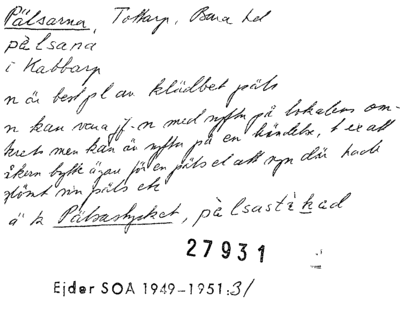 Pälsarna, Tottarp, Bara hd
pàlsana
i Kabbarp
n är best pl av klädbet päls
n kan vara jf-n med syftn på lokalens om-
krets men kan än syfta på en händelse, t ex att
åkern bytt ägare för en päls el att ngn där hade
glömt sin päls etc
ä k Pälsastycket, pàlsastỳkəd
27931
Ejder SOA 1949-1951:31